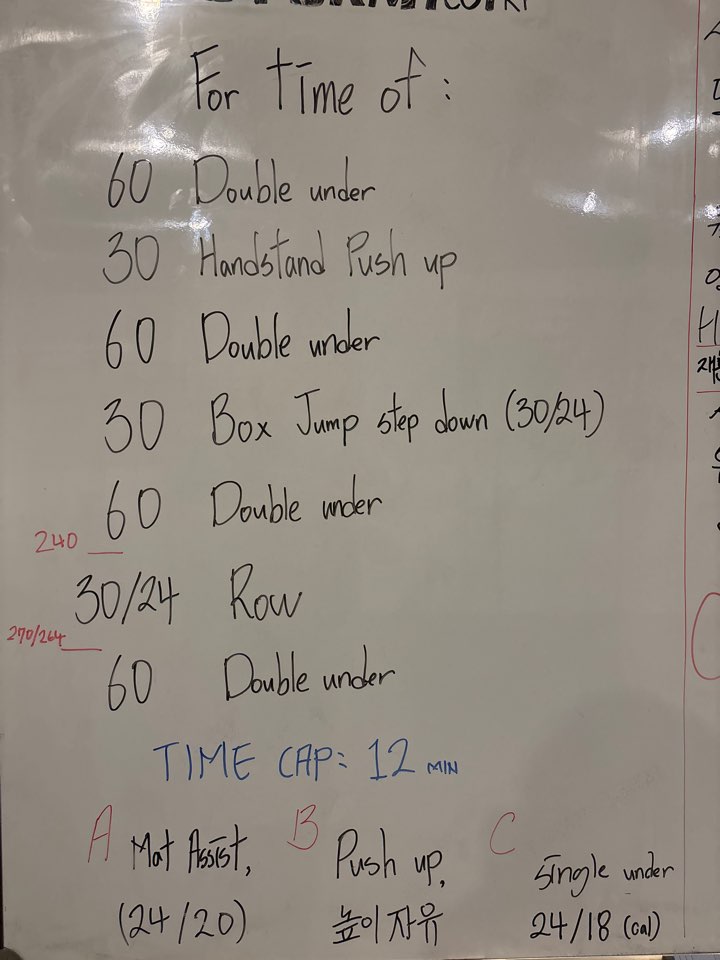 For time of :
60 Double under
30 Handstand Push up
60 Double under
30 Box Jump step down (30/24)
60 Double under
240
30/24 Row
270/264
60 Double under
TIME CAP: 12 MIN
A Mat Assist,
(24/20)
B Push up,
높이 자유
C single under
24/18 (cal)